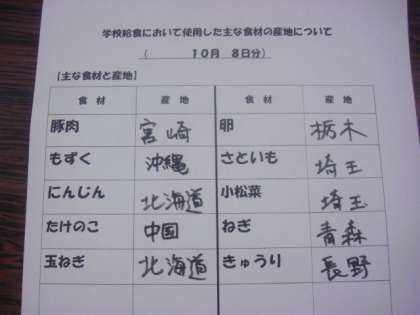 学校給食において使用した主な食材の産地について
( 10月 8日分)
【主な食材と産地】
食 材 産 地 食 材 産 地
豚肉 宮崎 卵 栃木
もずく 沖縄 さといも 埼玉
にんじん 北海道 小松菜 埼玉
たけのこ 中国 ねぎ 青森
玉ねぎ 北海道 きゅうり 長野